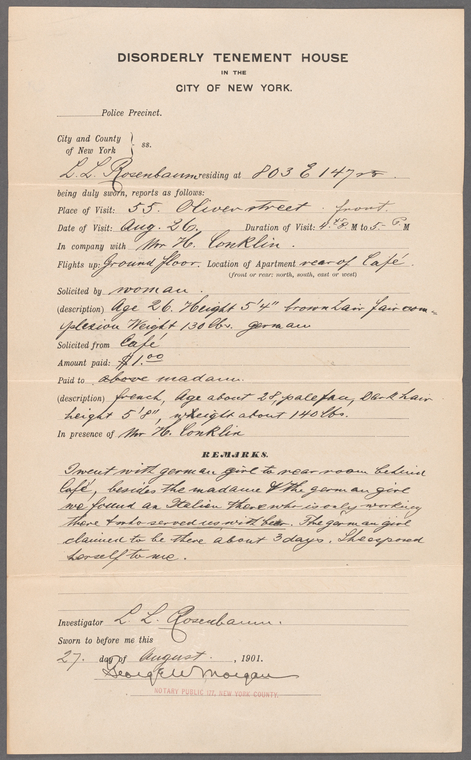 DISORDERLY TENEMENT HOUSE
IN THE
CITY OF NEW YORK.
Police Precinct.
City and County
of New York } ss.
L. L. Rosenbaum residing at 803 E 147
being duly sworn, reports as follows:
Place of Visit: 55 Oliver street front
Date of Visit: Aug. 26, Duration of Visit: 4 P M to 5 P M
In company with Mr H. Conklin.
Flights up: Ground floor. Location of Apartment rear of Café
(front or rear: north, south, east or west)
Solicited by woman.
(description) Age 26. Height 5'4" brown hair fair com-
plexion Weight 130 lbs. german
Solicited from Café
Amount paid: $1.00
Paid to above madam.
(description) french, Age about 28, pale, Dark hair
height 5'8", weight about 140 lbs.
In presence of Mr H. Conklin
REMARKS.
I went with german girl to rear room behind
Café, besides the madame & the german girl
we found an Italian there who is only working
there & who served us with beer. The german girl
claimed to be there about 3 days. She exposed
herself to me.
Investigator L. L. Rosenbaum.
Sworn to before me this
27. day of August, 1901.
George W Morgan
NOTARY PUBLIC NEW YORK COUNTY.